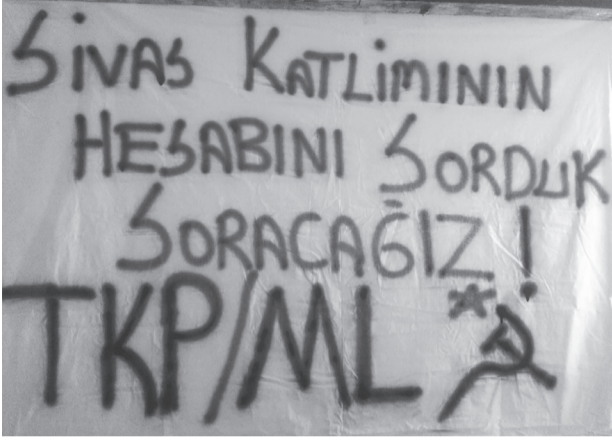 SİVAS KATLİMININ
HESABINI SORDUK
SORACAĞIZ!
TKP/ML